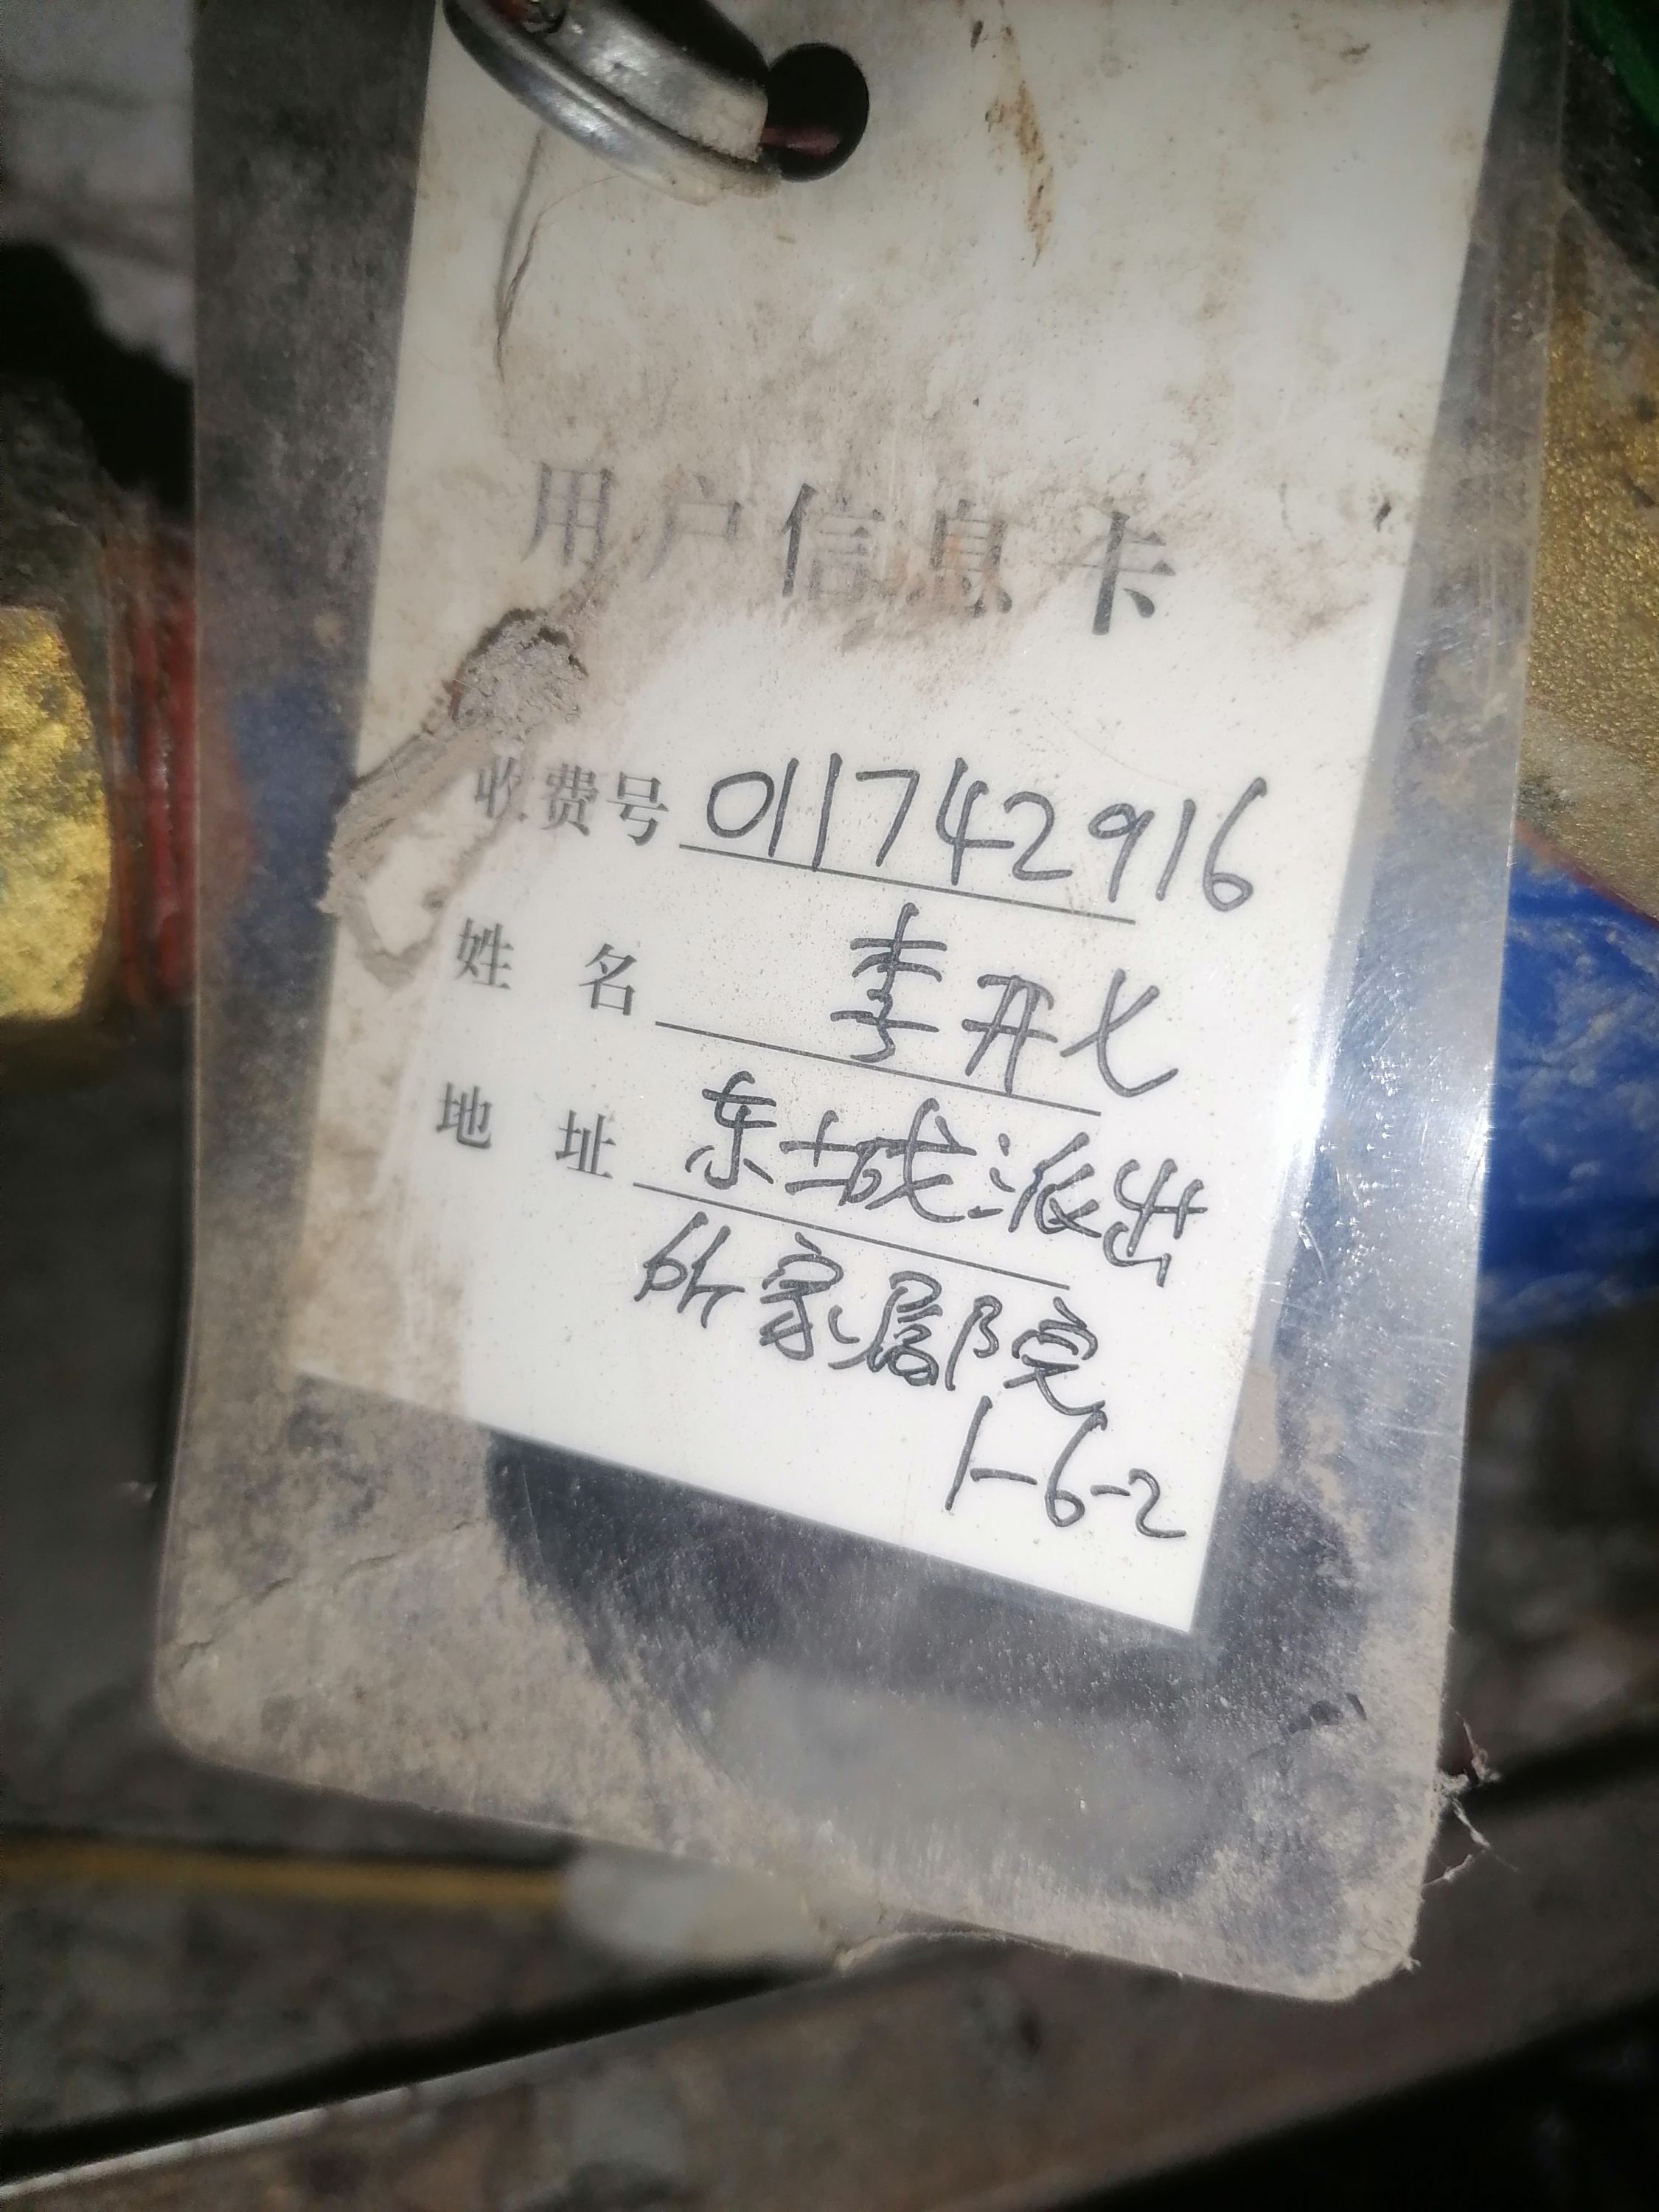 用户信息卡
收费号 011742916
姓名 李开七
地址 东城派出
所家属院
1-6-2